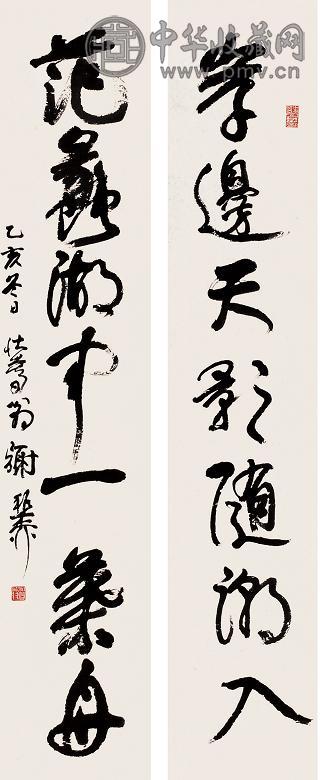 中华收藏网
www.pmv.cn
邊天影隨潮入
范蠡湖中一葉舟
乙亥冬日 壯暮翁 謝稚柳